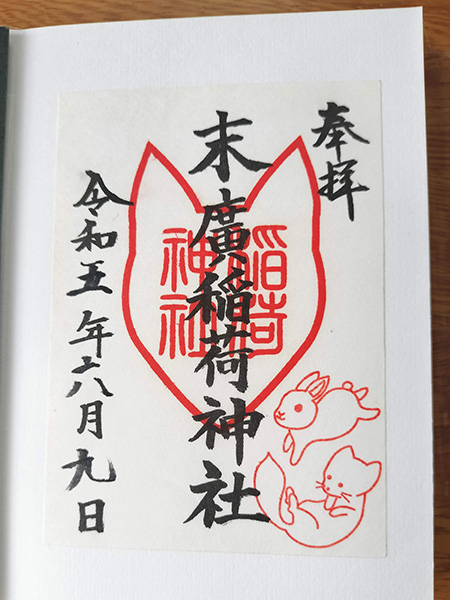 奉拝
末廣稲荷神社
稲荷
神社
令和五年六月九日